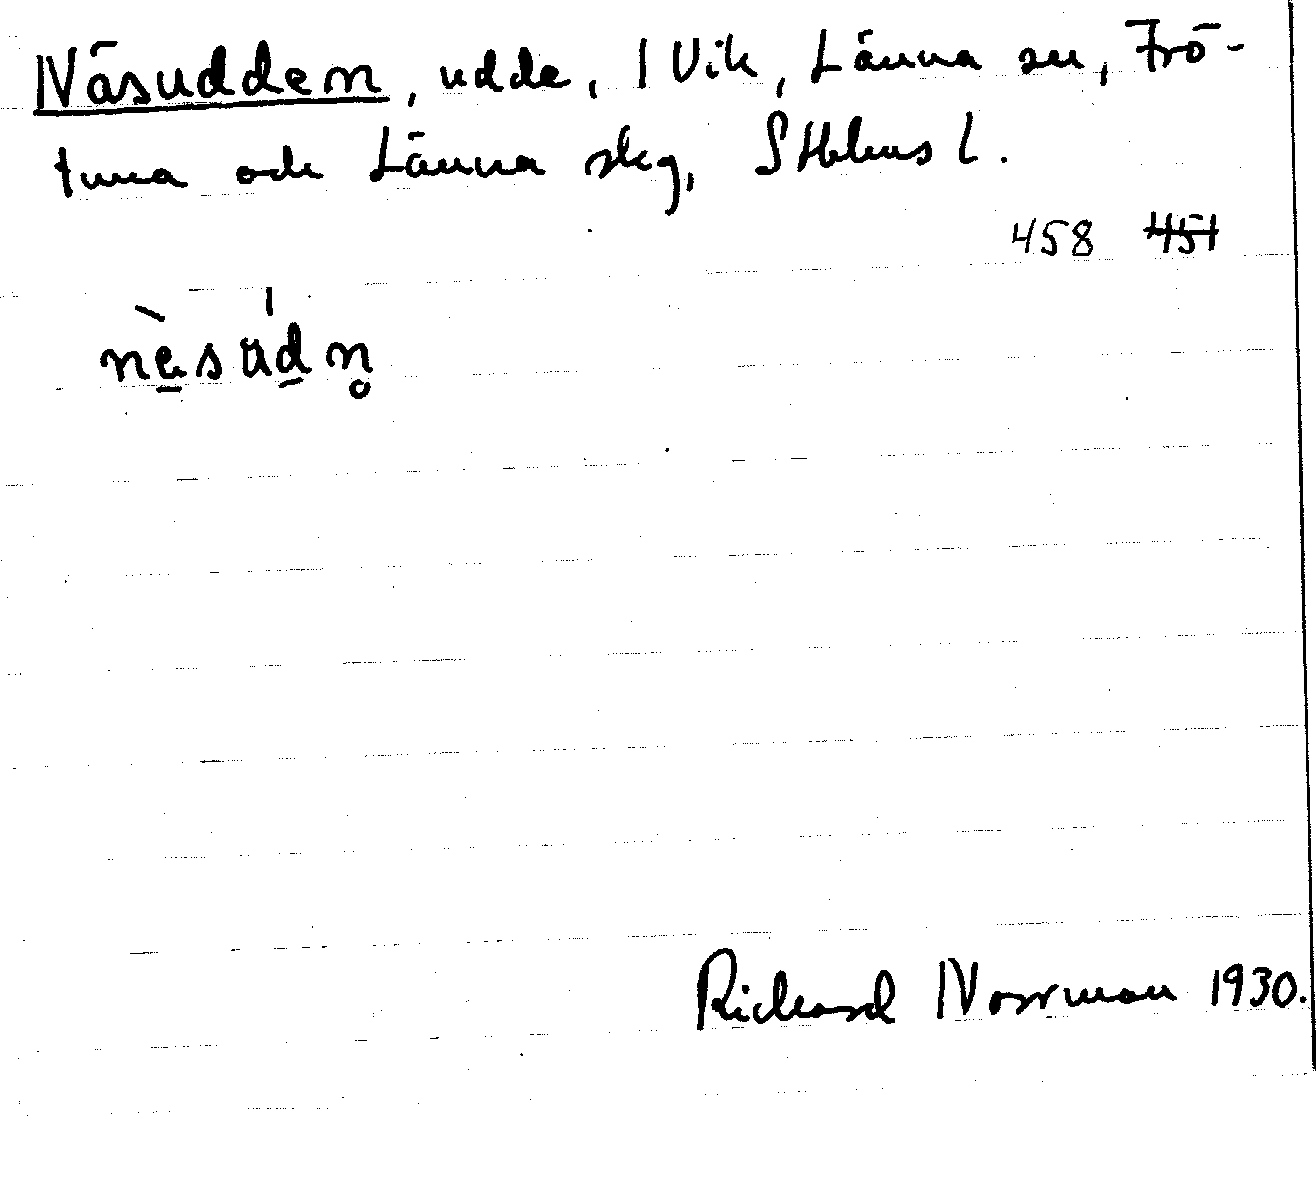 Näsudden, udde, 1 Vik, Länna sn, Frö-
tuna och Länna skg, Sthlms l.
458 451
nèsúdn̥
Richard Norrman 1930.